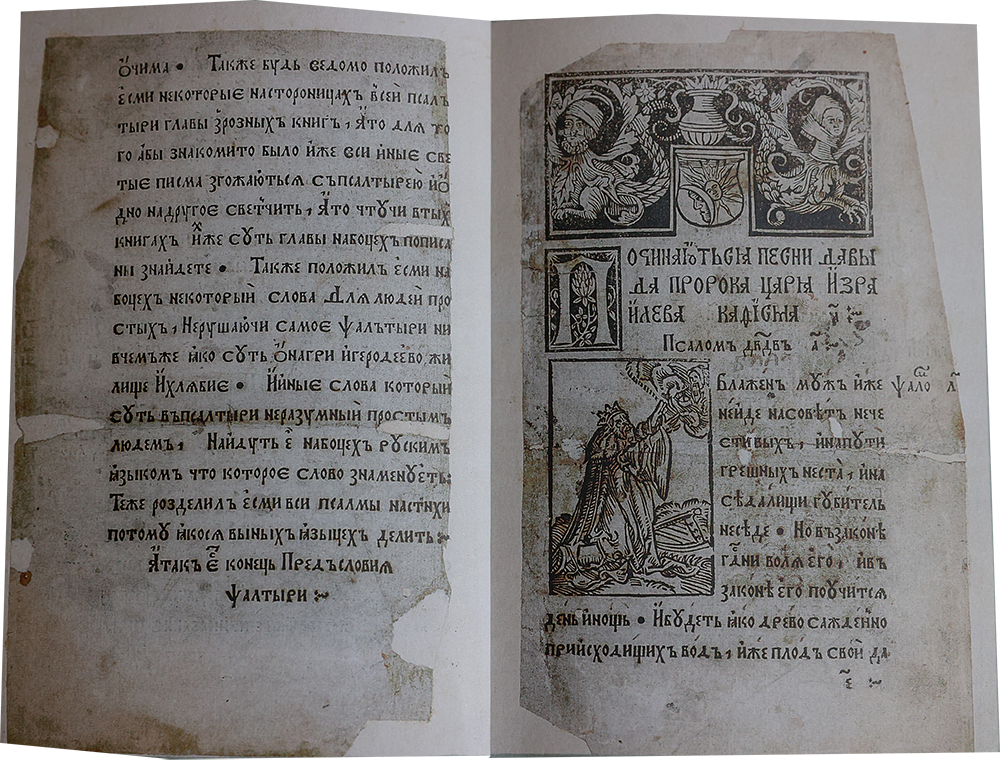 ѻ҆чима • Также будь ведомо положилъ
есми некоторые настороницахъ всей псал
тыри главы зрозныхъ книгъ, А҆то для то
го абы знакомито было и҆же вси и҆ные све
тые писма згожаються съпсалтырею и҆ѻ
дно надругое светчить, А҆то чтучи втых
книгах и҆же суть главы набоцехъ пописа
ны знайдете • Также положилъ есми на
боцехъ некоторый слова Для людей про
стыхъ, Нерушаючи самое Ѱалътыри ни
вчемъже ꙗко суть ѻ҆нагри и҆геродеево жи
лище И҆хлябие • И҆йные слова который
суть въпсалтыри неразумный простымъ
людемъ, Найдуть е҃ набоцех руским
ꙗзыком что которое слово знаменуеть:
Теже розделилъ есми вси псалмы настихи
потому ꙗкося выныхъ ꙗзыцех делить
А҆такъ е҃ конець Предъсловия
Ѱалтыри
Починаються песни давы
да пророка царꙗ И҆зра
и҆лева каѳисма а҃
Псаломъ дв҃двъ а҃
Блажен мужъ иже ѱало҃ а҃
неиде насовѣтъ нече
стивыхъ, и҆напути
грешныхъ неста, и҆на
сѣдалищи губитель
несѣде • Но възаконѣ
гд҃ни волꙗ его, и҆въ
законѣ его поучится
день и҆нощь • И҆будеть ꙗко древо сажденно
приисходищихъ водъ, и҆же плодъ свой да
е҃